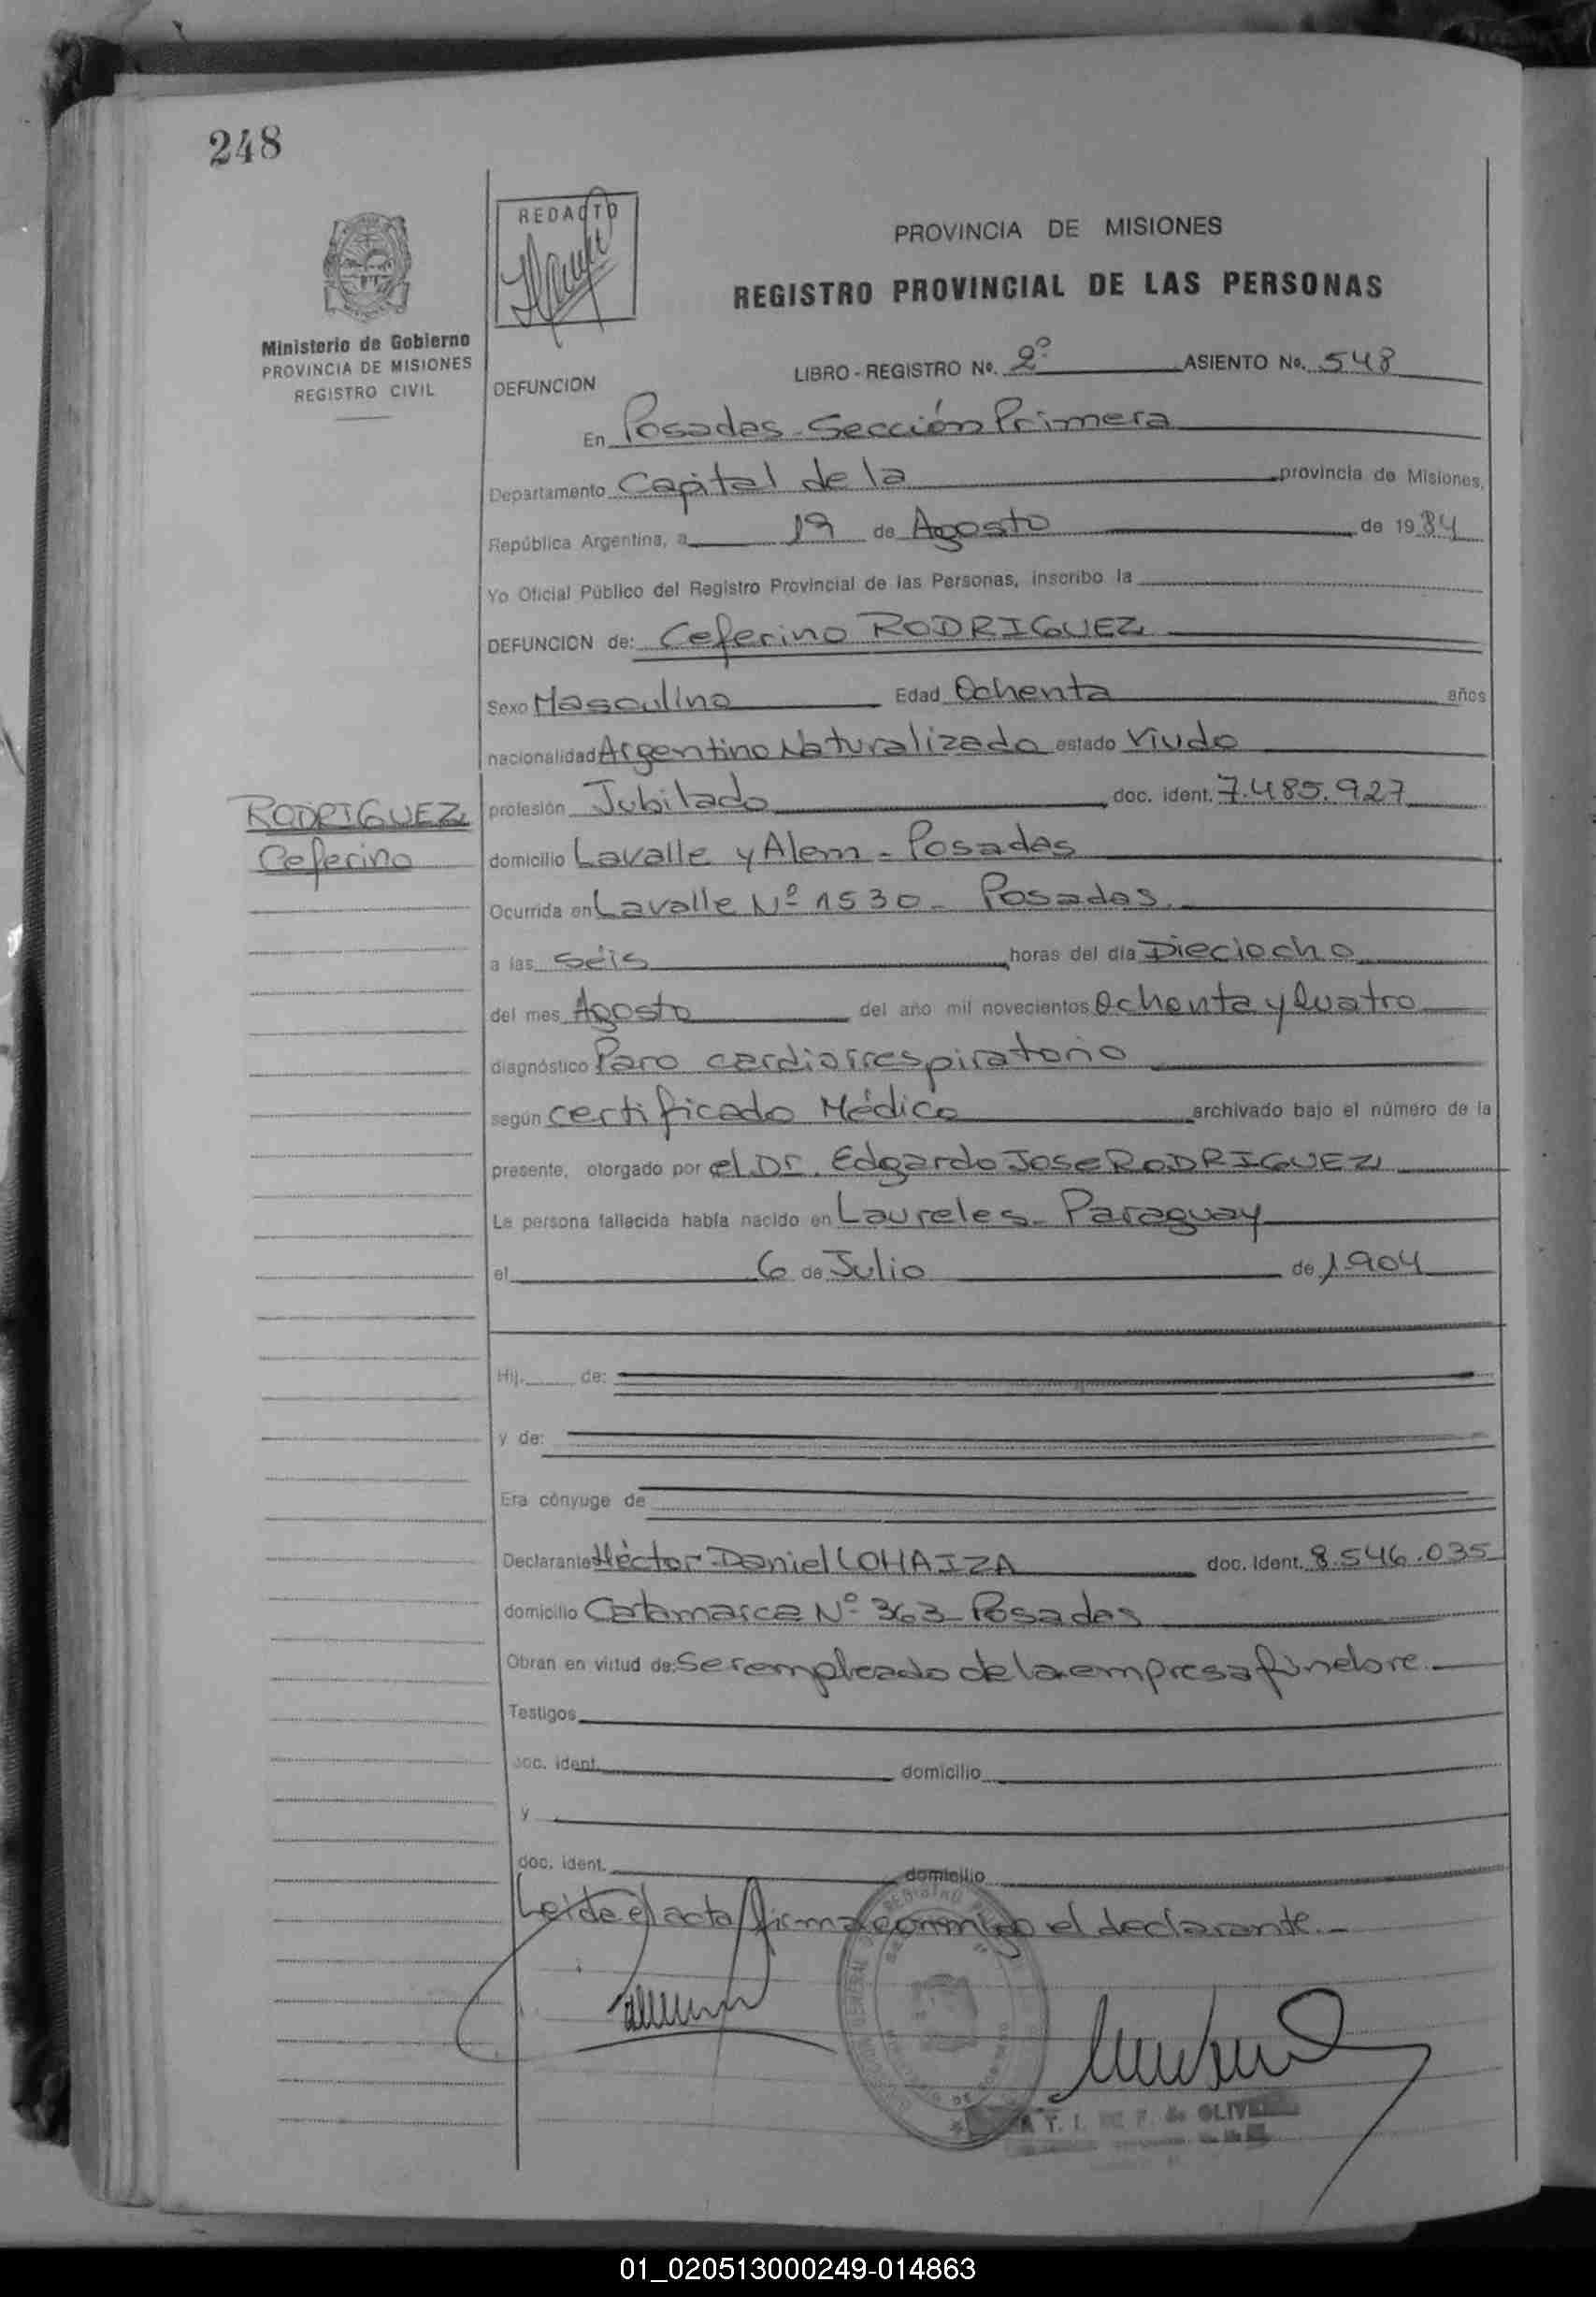 248
REDACTO
PROVINCIA DE MISIONES
REGISTRO PROVINCIAL DE LAS PERSONAS
Ministerio de Gobierno
PROVINCIA DE MISIONES
REGISTRO CIVIL
DEFUNCION
LIBRO - REGISTRO No. 2º ASIENTO No. 548
En Posadas - Sección Primera
Departamento Capital de la provincia de Misiones,
República Argentina, a 19 de Agosto de 1984
Yo Oficial Público del Registro Provincial de las Personas, inscribo la
DEFUNCION de: Ceferino RODRIGUEZ
Sexo Masculino Edad Ochenta años
nacionalidad Argentino Naturalizado estado Viudo
RODRIGUEZ
Ceferino
profesión Jubilado doc. ident. 7.485.927
domicilio Lavalle y Alem - Posadas
Ocurrida en Lavalle Nº 1530 - Posadas
a las Séis horas del día Dieciocho
del mes Agosto del año mil novecientos Ochenta y Cuatro
diagnóstico Paro cardiorrespiratorio
según Certificado Médico archivado bajo el número de la
presente, otorgado por el Dr. Edgardo Jose RODRIGUEZ
La persona fallecida había nacido en Laureles - Paraguay
el 6 de Julio de 1.904
Hij. de:
y de:
Era cónyuge de
Declarante Héctor Daniel LOHAIZA doc. Ident. 8.546.035
domicilio Catamarca Nº 363 - Posadas
Obran en virtud de: Ser empleado de la empresa fúnebre.
Testigos
doc. ident. domicilio
y
doc. ident. domicilio
Leida el acta firma conmigo el declarante.-
01_020513000249-014863